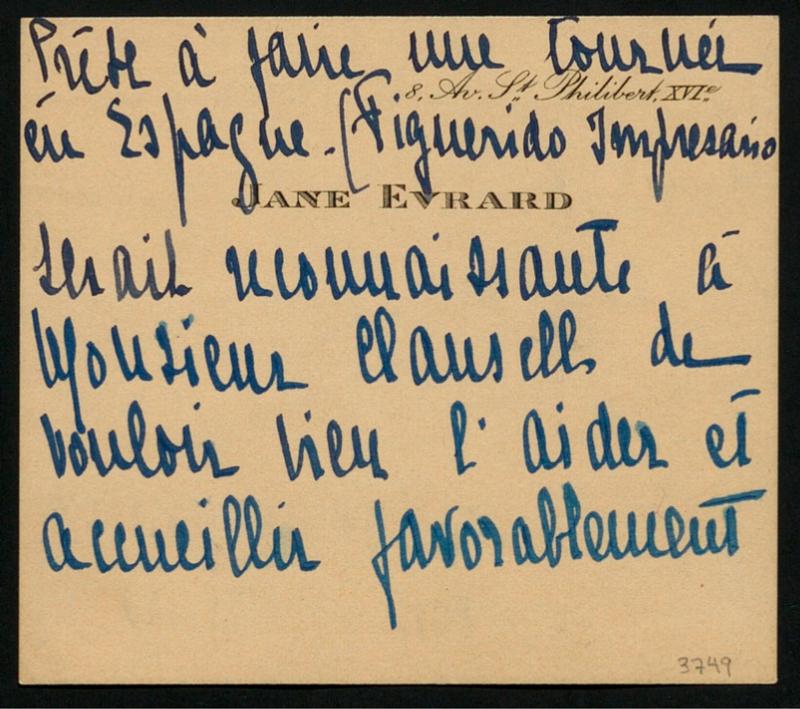 Prête à faire une tournée
8, Av. St. Philibert, XVIe
en Espagne. (Figuerido Impresario
JANE EVRARD
serait reconnaissante à
Monsieur Clausells de
vouloir bien l'aider et
accueillir favorablement
3749